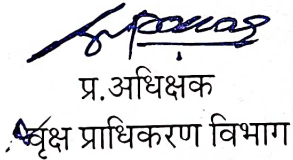 प्र.अधिक्षक
वृक्ष प्राधिकरण विभाग